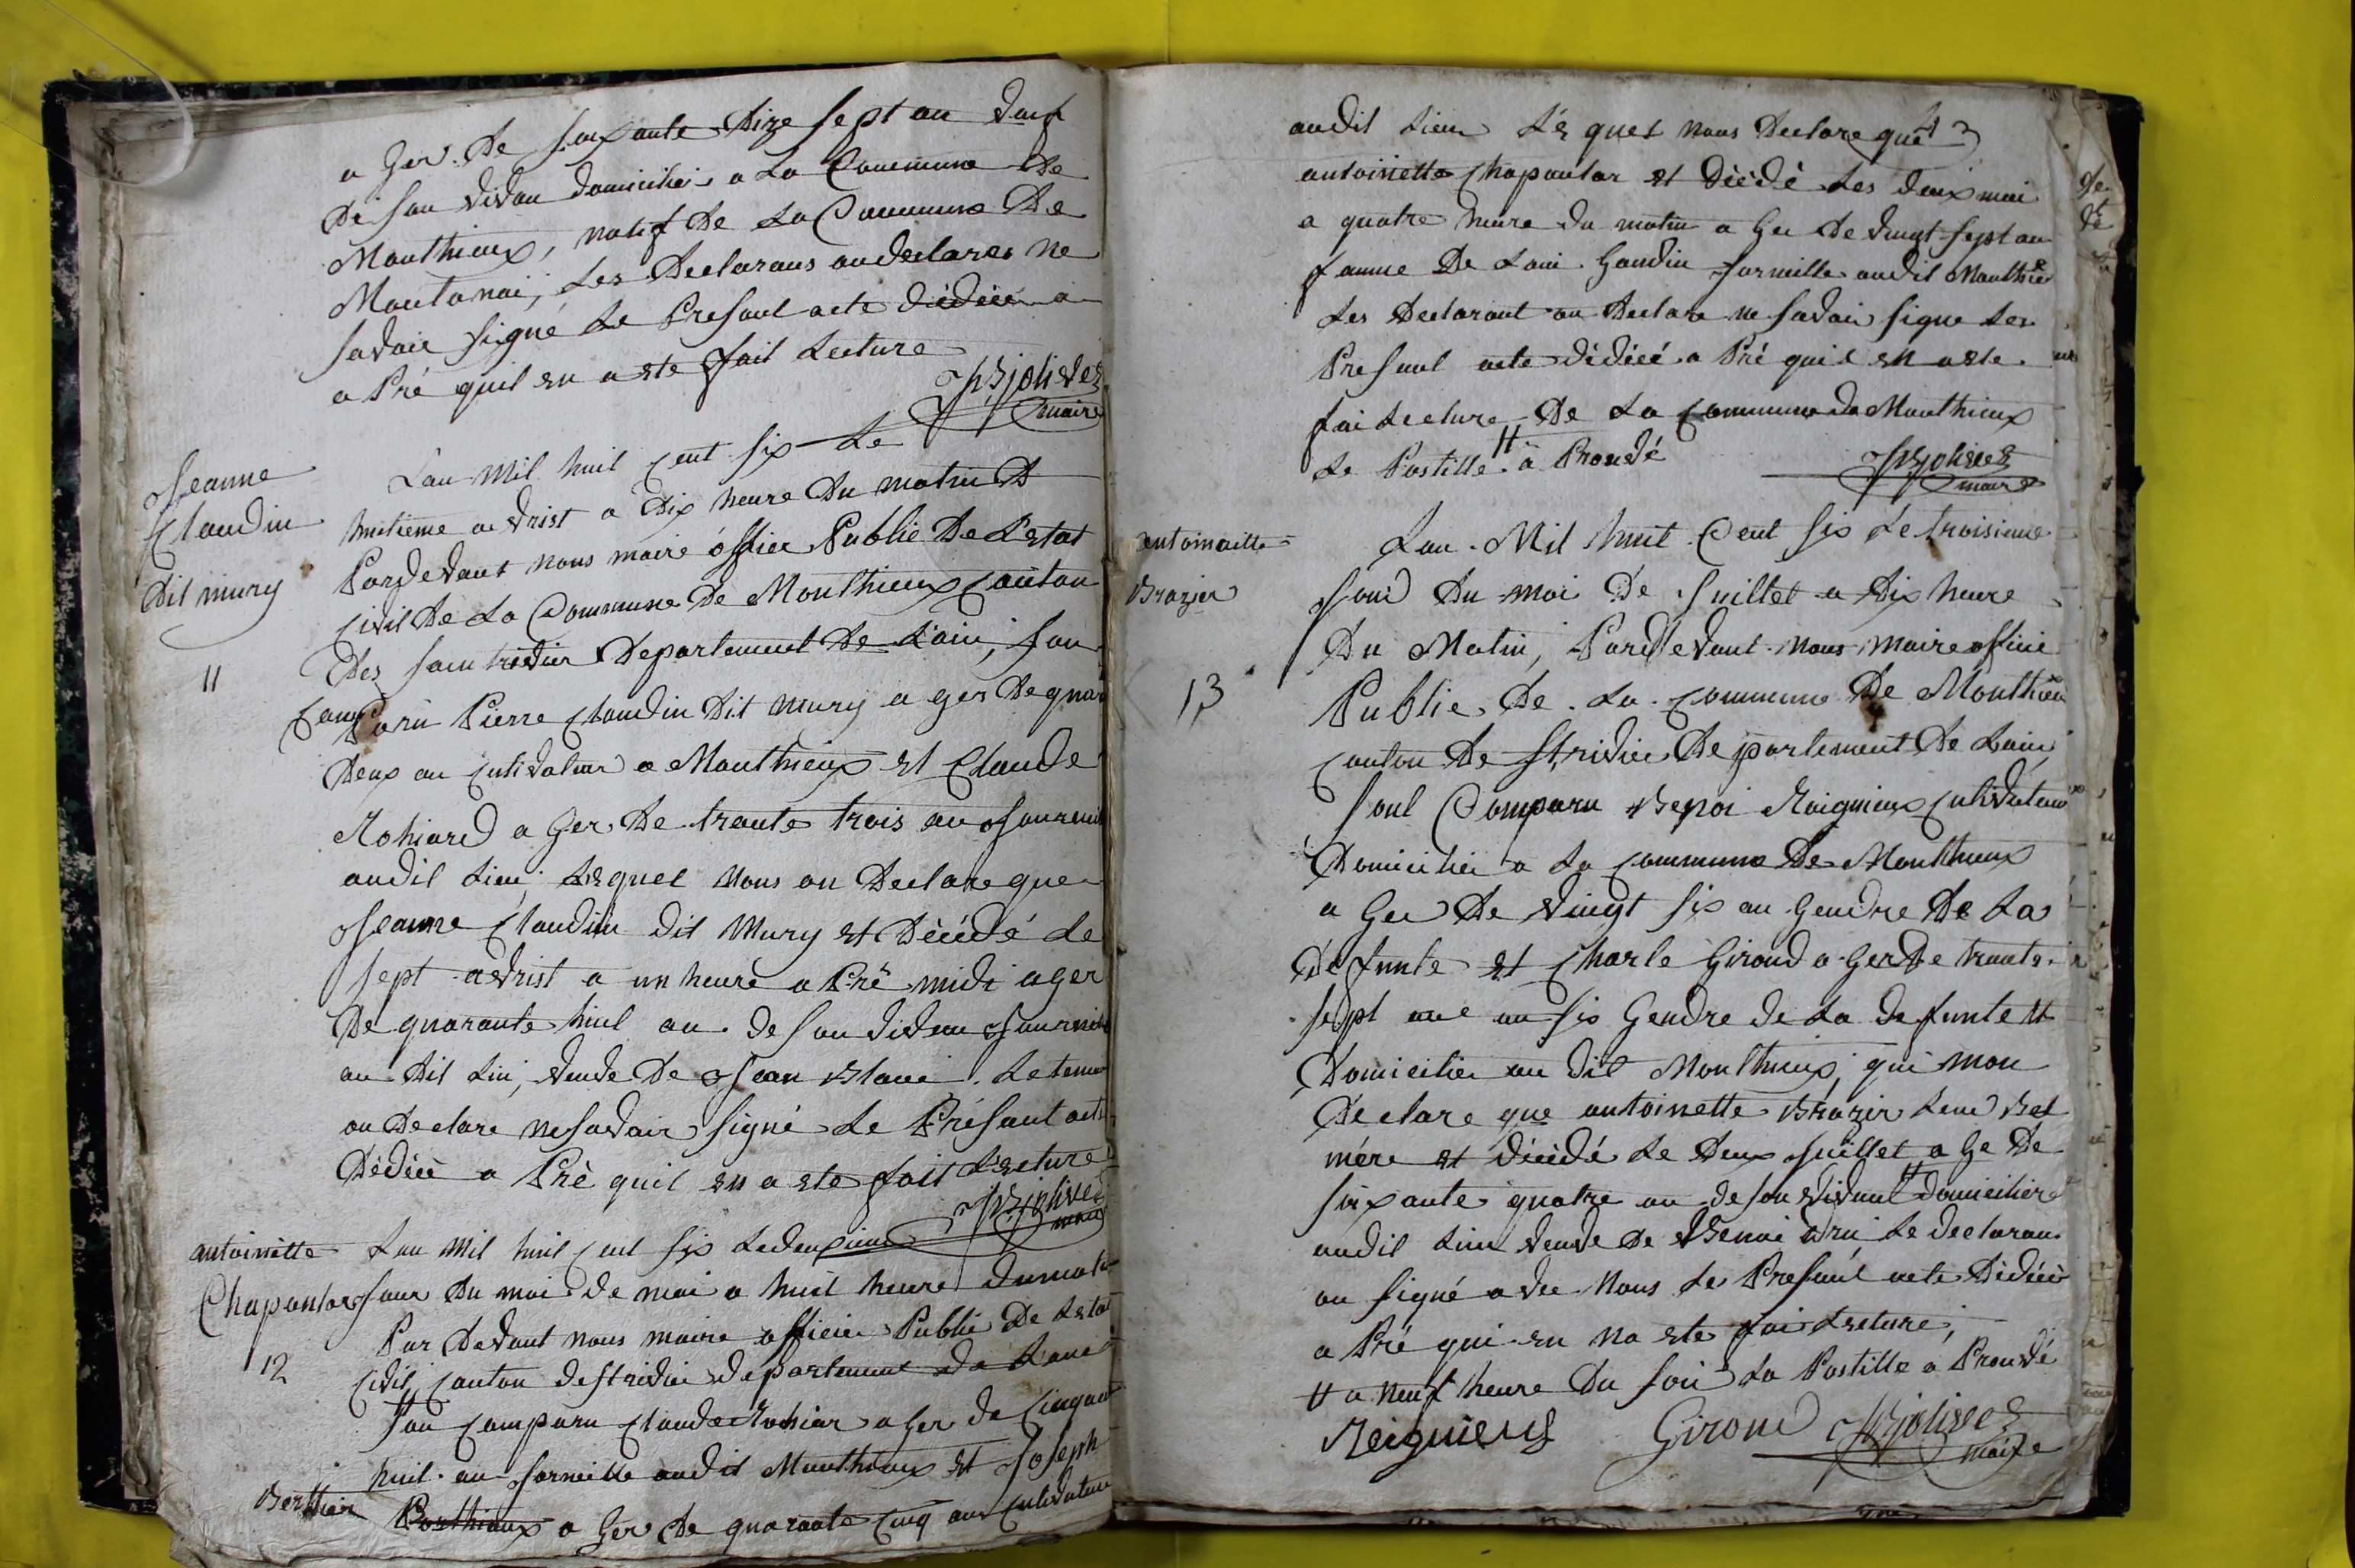 a Ger. de soixante dize sept an
de son vivan domicilié a La Commune de
Monthieux, natif de La Commune De
Montanai, Les Declarans on declares ne
savair signé Le Presant acte
a Pré quil en a ete fait Lecture
JB jolivet
maire
Jeanne
Claudin
dit mury
11
L'an mil huit Cent six Le
huitieme avrist a dix heure du matin
Pardevant nous maire officier Public De L'estat
Civil De La Commune De Monthieux Canton
Des saintrivier Departement De L'ain, son
Comparu Pierre Claudin dit mury a ger de quar
deux an cultivateur a Monthieux et Claude
Rohiard a Ger. de trante trois an Journ
audit Lieu, Lequel nous on Declare que
Jeanne Claudin dit Mury et Décédé Le
sept avrist a un heure a Pré midi ager
De quarante huit an de son vivan
au dit Lieu, veuve De Jean
on Declare ne savair signé Le Présant acte
a Pré quil en a ete fait Lecture
JB jolivet
maire
antoinette
Chapontar
12
Lan mil huit Cent six Le deuxieme
Jour Du moi de mai a huit heure du matin
Par Devant nous maire officier Public De Letat
Civil, Canton de strivier departement de L'ain
son Comparu Claude Rohiar a Ger de Cinquant
huit an audit Monthieux et Joseph
Berthier Ponthieux a Ger de quarante Cinq ans Cultivateur
4
audit Lieu Lesquel nous Declare que
antoinette Chapontar et Décédé Les deux mai
a quatre heure du matin a Ger De vingt sept an
famme De Loui Gandin audit Monthieux
Les Declarant on Declare ne savair signe Les
Presant acte a Pré quil en a ete
fai Lecture, De La Commune de Monthieux
Le Postille a Prouvé
JB jolivet
maire
antoinaitte
Brazier
13
Lan Mil huit Cent six Le troisieme
Jour Du moi De Juillet a dix heure
Du Matin, Pardevant nous maire officie
Public De La Commune De Monthieux
Canton De strivier Departement De Lain,
sont Comparu Benoi Raignieux Cultivateur
Domicilié a La Commune De Monthieux
a Ger De vingt six an Gendre De La
Defunte et Charle Giroud a Ger De trante
sept an aussi Gendre de La defunte et
Domicilier au dit Monthieux, qui mon
Declare que antoinette Brazier Leur Bel
mére et décédé Le deux Juillet a Ge De
soixante quatre an de son vivant domicilier
audit Lieu veuve De Benoi Le declaran
on signé avec nous Le Presant acte
a Pré qui en na ete fai Lecture,
a neuf heure Du soir La Postille a Prouvé
Reignieux Giroud JB jolivet
maire